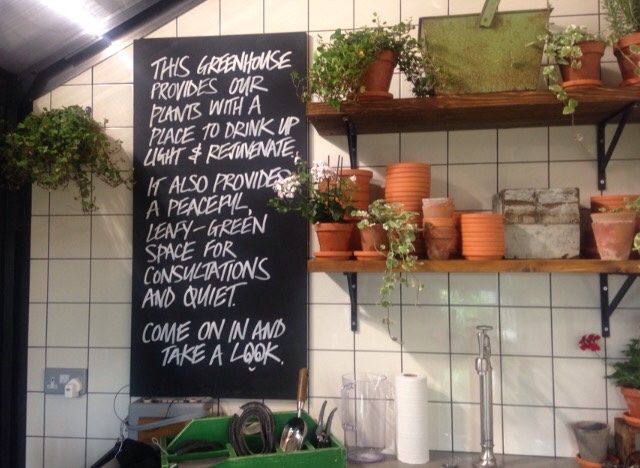 THIS GREENHOUSE
PROVIDES OUR
PLANTS WITH A
PLACE TO DRINK UP
LIGHT & REJUVENATE.
IT ALSO PROVIDES
A PEACEFUL,
LEAFY-GREEN
SPACE FOR
CONSULTATIONS
AND QUIET.
COME ON IN AND
TAKE A LOOK.